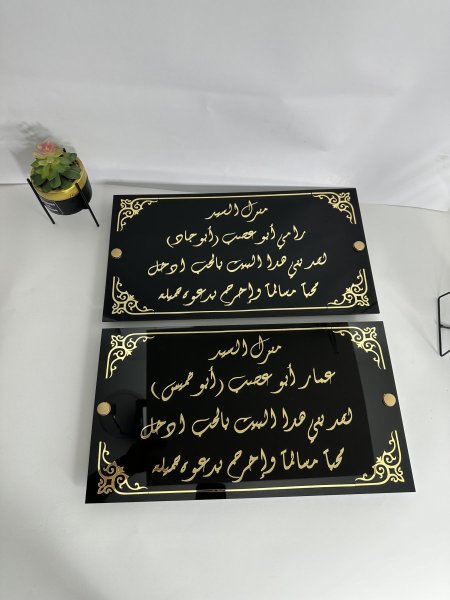 منزل السيد
رامي أبو عصب (أبو جاد)
لقد بني هذا البيت بالحب ادخل
محباً مسالماً وإخرج بدعوه جميله
منزل السيد
عمار أبو عصب (أبو خميس)
لقد بني هذا البيت بالحب ادخل
محباً مسالماً وإخرج بدعوه جميله